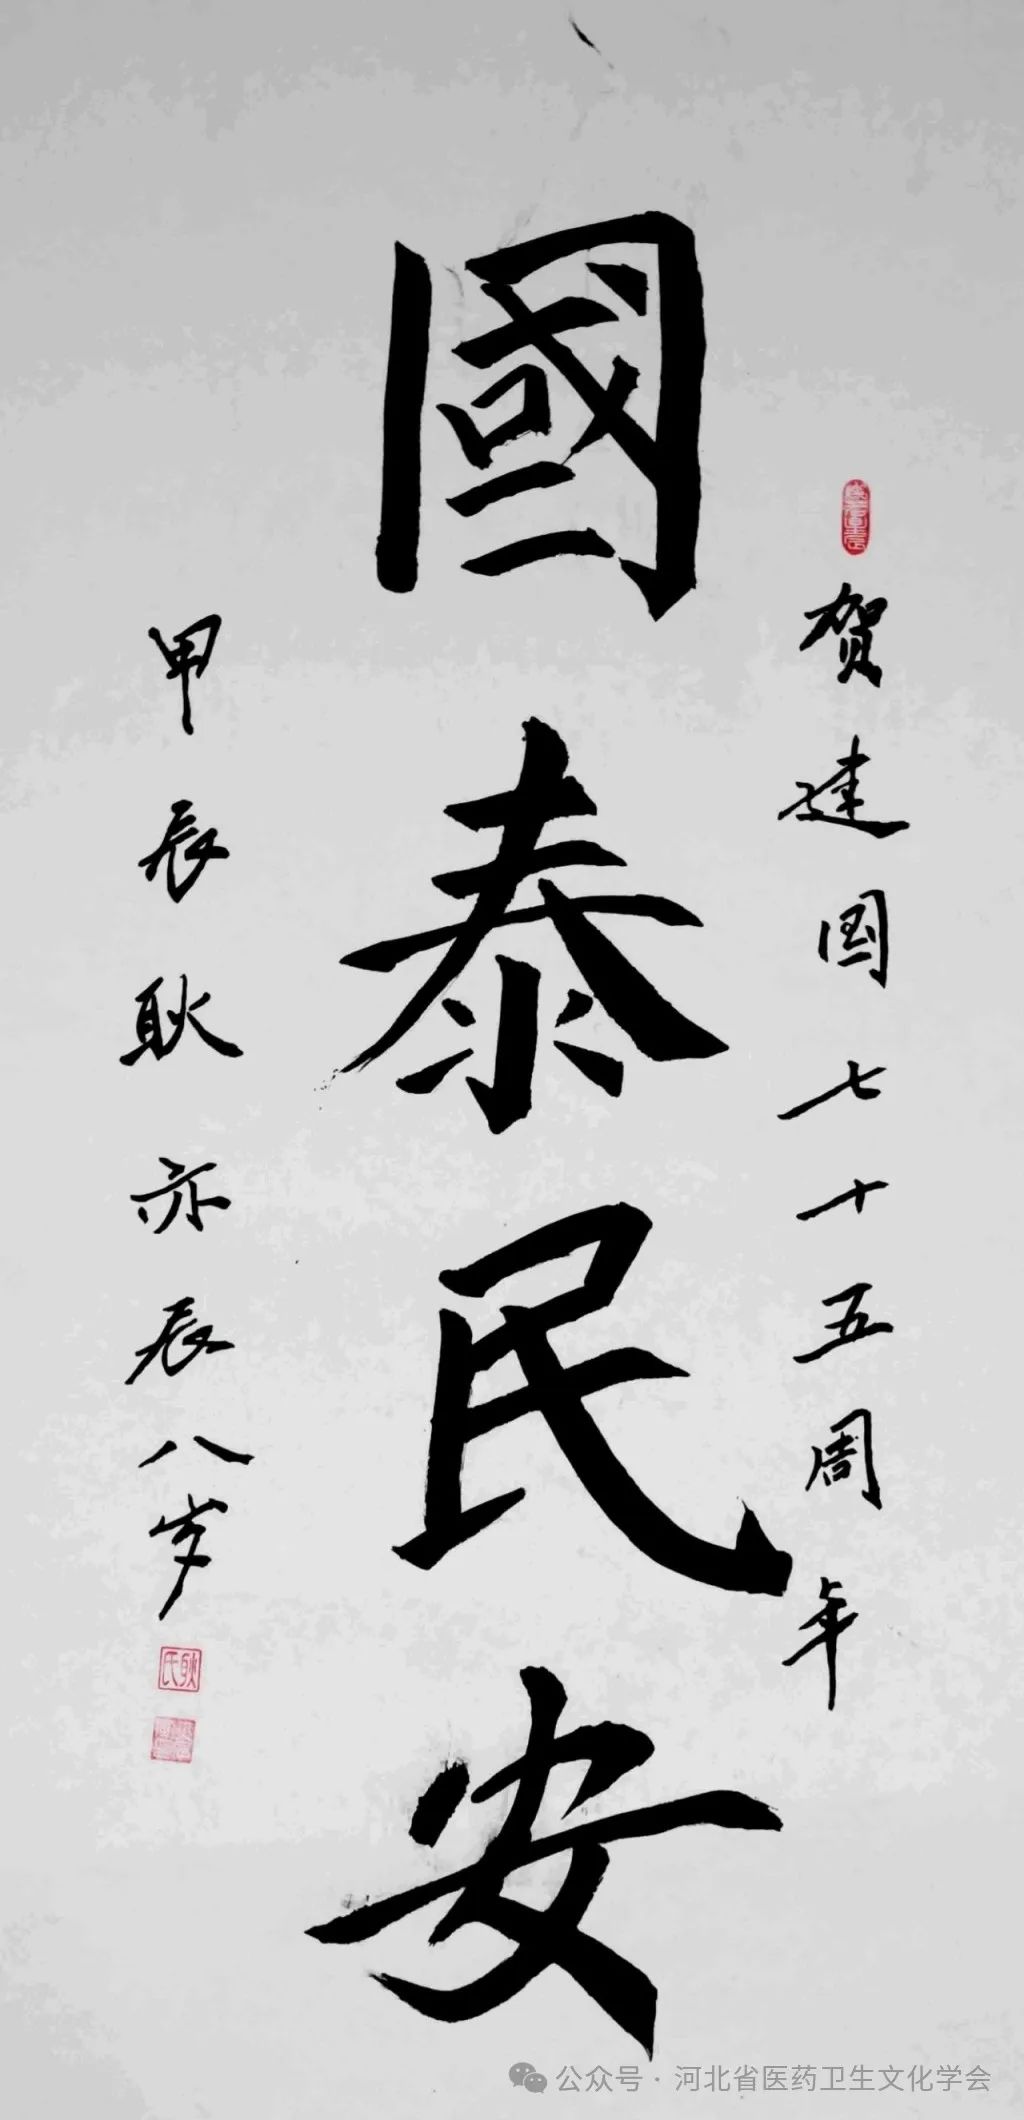 賀建国七十五周年
國泰民安
甲辰耿亦辰八岁
耿氏
公众号·河北省医药卫生文化学会